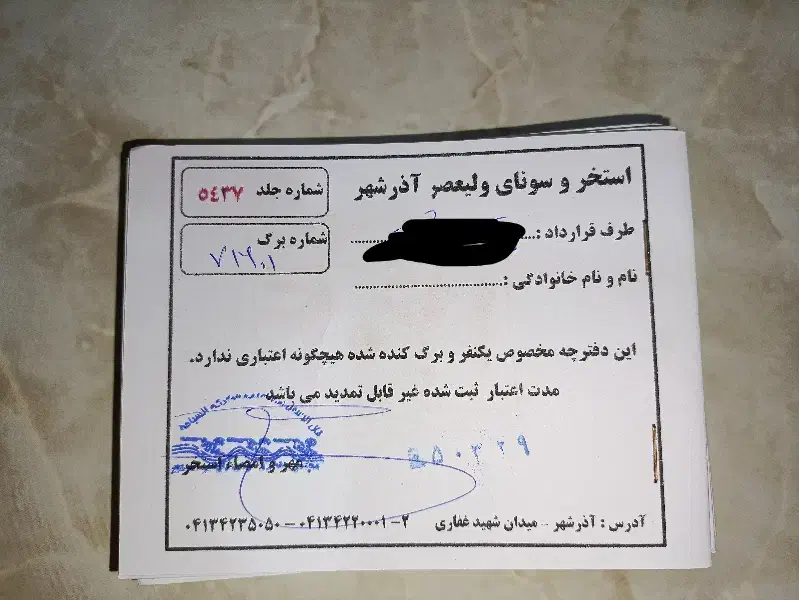 استخر و سونای ولیعصر آذرشهر
شماره جلد ٥٤٣٧
طرف قرارداد :
شماره برگ
نام و نام خانوادگی :
این دفترچه مخصوص یکنفر و برگ کنده شده هیچگونه اعتباری ندارد.
مدت اعتبار ثبت شده غیر قابل تمدید می باشد
مهر و امضاء استخر
آدرس : آذرشهر - میدان شهید غفاری ۲-۰۴۱۳۴۲۲۰۰۰۱ – ۰۴۱۳۴۲۳۵۰۵۰